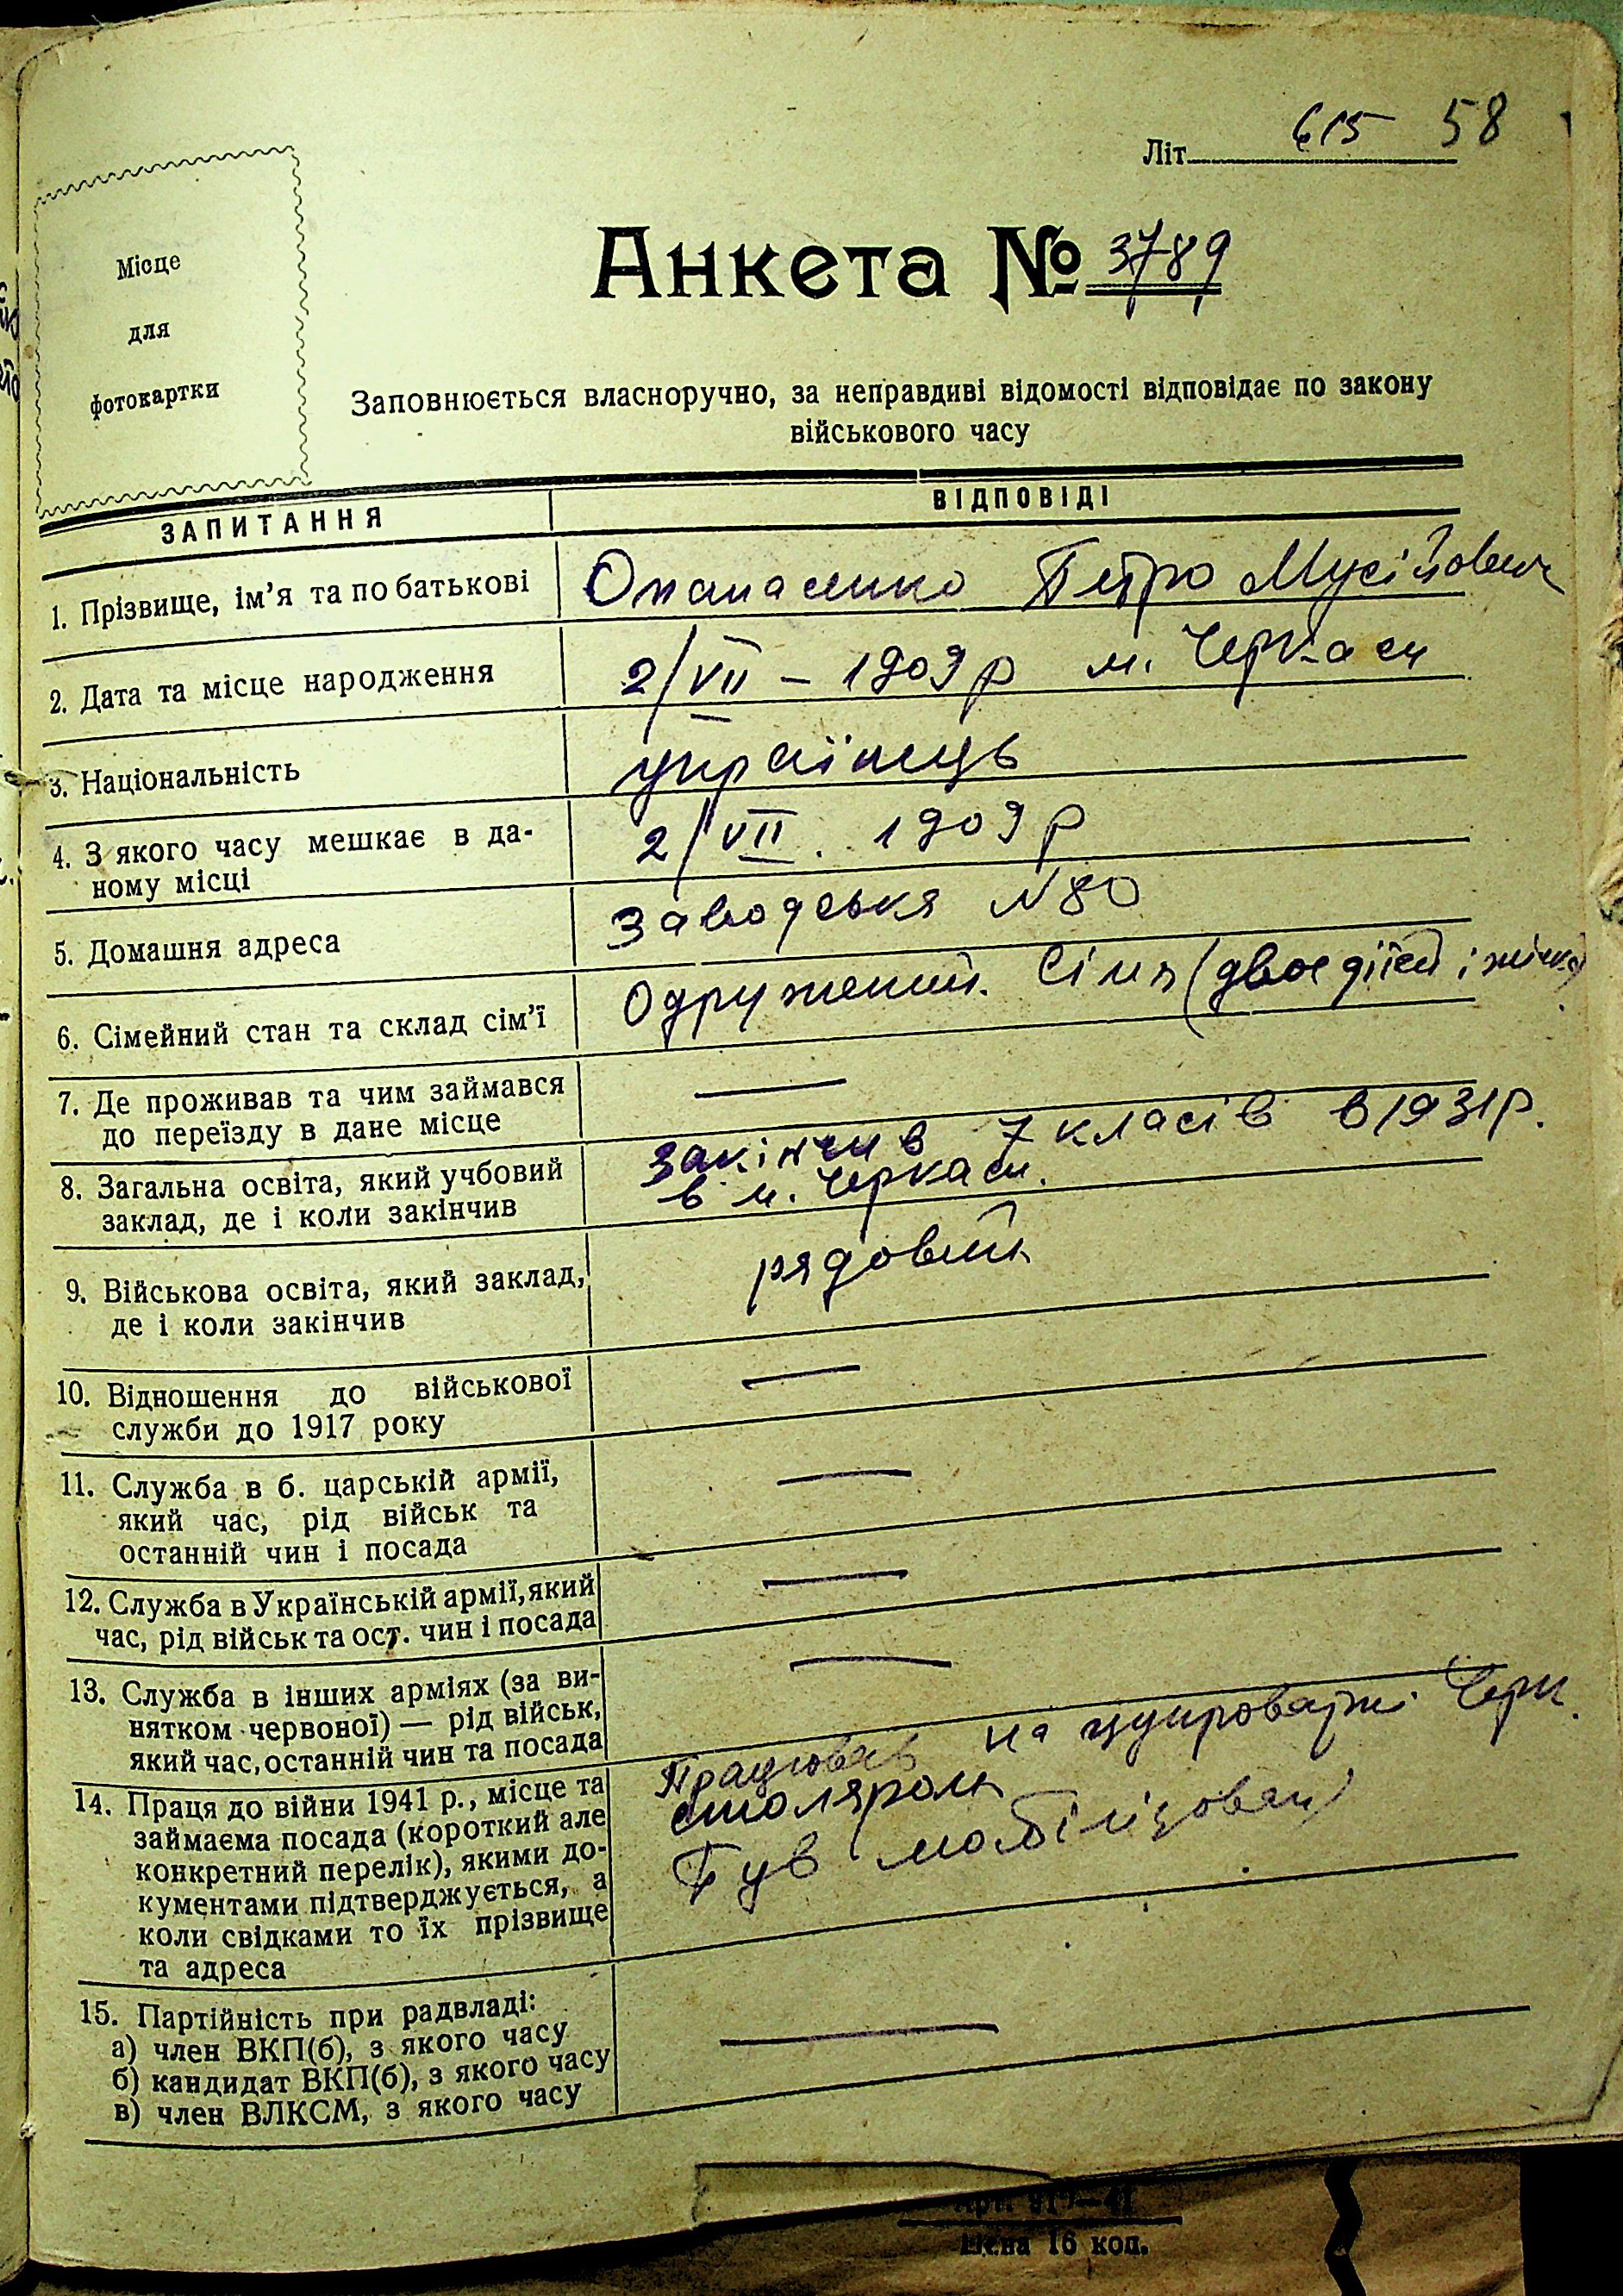 Літ. 615 58
Місце
для
фотокартки
Анкета № 3789
Заповнюється власноручно, за неправдиві відомості відповідає по закону
військового часу
ЗАПИТАННЯ ВІДПОВІДІ
1. Прізвище, ім'я та по батькові Опанасенко Петро Мусійович
2. Дата та місце народження 2/VII – 1909 р м. Черкаси
3. Національність українець
4. З якого часу мешкає в да-
ному місці 2/VII. 1909 р
5. Домашня адреса Заводська N 80
6. Сімейний стан та склад сім'ї Одружений. Сімя (двоє дітей і жінка)
7. Де проживав та чим займався
до переїзду в дане місце —
8. Загальна освіта, який учбовий Закінчив 7 класів в 1931 р.
заклад, де і коли закінчив в м. Черкаси.
9. Військова освіта, який заклад, рядовий
де і коли закінчив
10. Відношення до військової —
служби до 1917 року
11. Служба в б. царській армії, —
який час, рід військ та
останній чин і посада
12. Служба в Українській армії, який —
час, рід військ та ост. чин і посада
13. Служба в інших арміях (за ви- —
нятком червоної) — рід військ,
який час, останній чин та посада
14. Праця до війни 1941 р., місце та Працював на цукроварні Черк.
займаєма посада (короткий але столяром
конкретний перелік), якими до- Був мобілізован
кументами підтверджується, а
коли свідками то їх прізвище
та адреса
15. Партійність при радвладі:
а) член ВКП(б), з якого часу —
б) кандидат ВКП(б), з якого часу
в) член ВЛКСМ, з якого часу
Цена 16 коп.